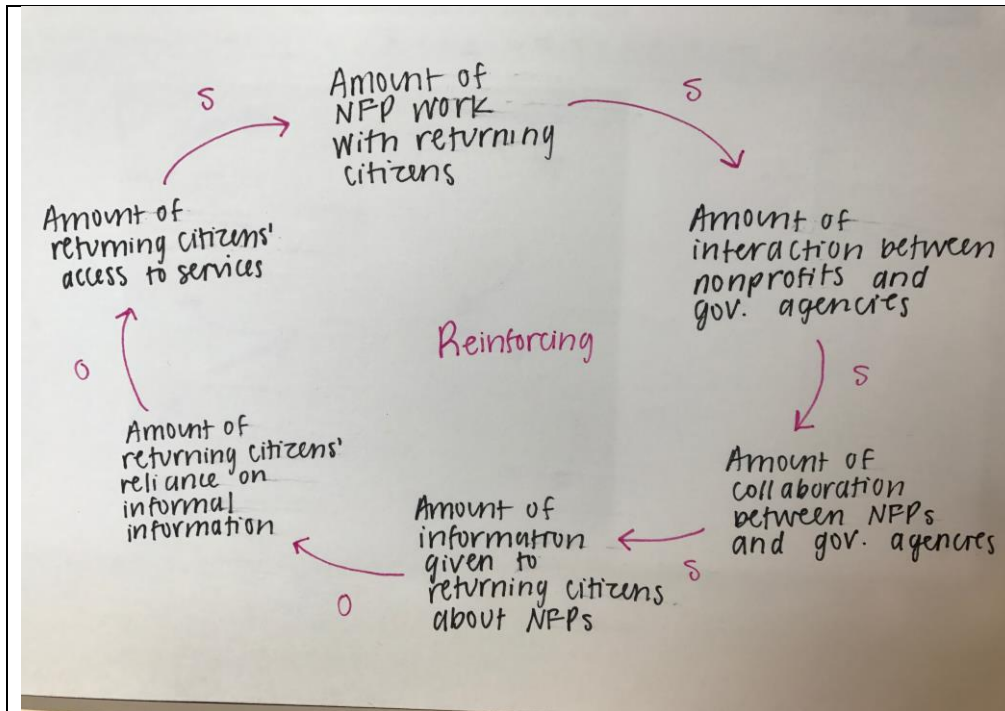 S
Amount of
NFP work
with returning
citizens
S
Amount of
interaction between
nonprofits and
gov. agencies
S
Amount of
collaboration
between NFPs
and gov. agencies
S
Amount of
information
given to
returning citizens
about NFPs
O
Amount of
returning citizens'
reliance on
informal
information
O
Amount of
returning citizens'
access to services
Reinforcing